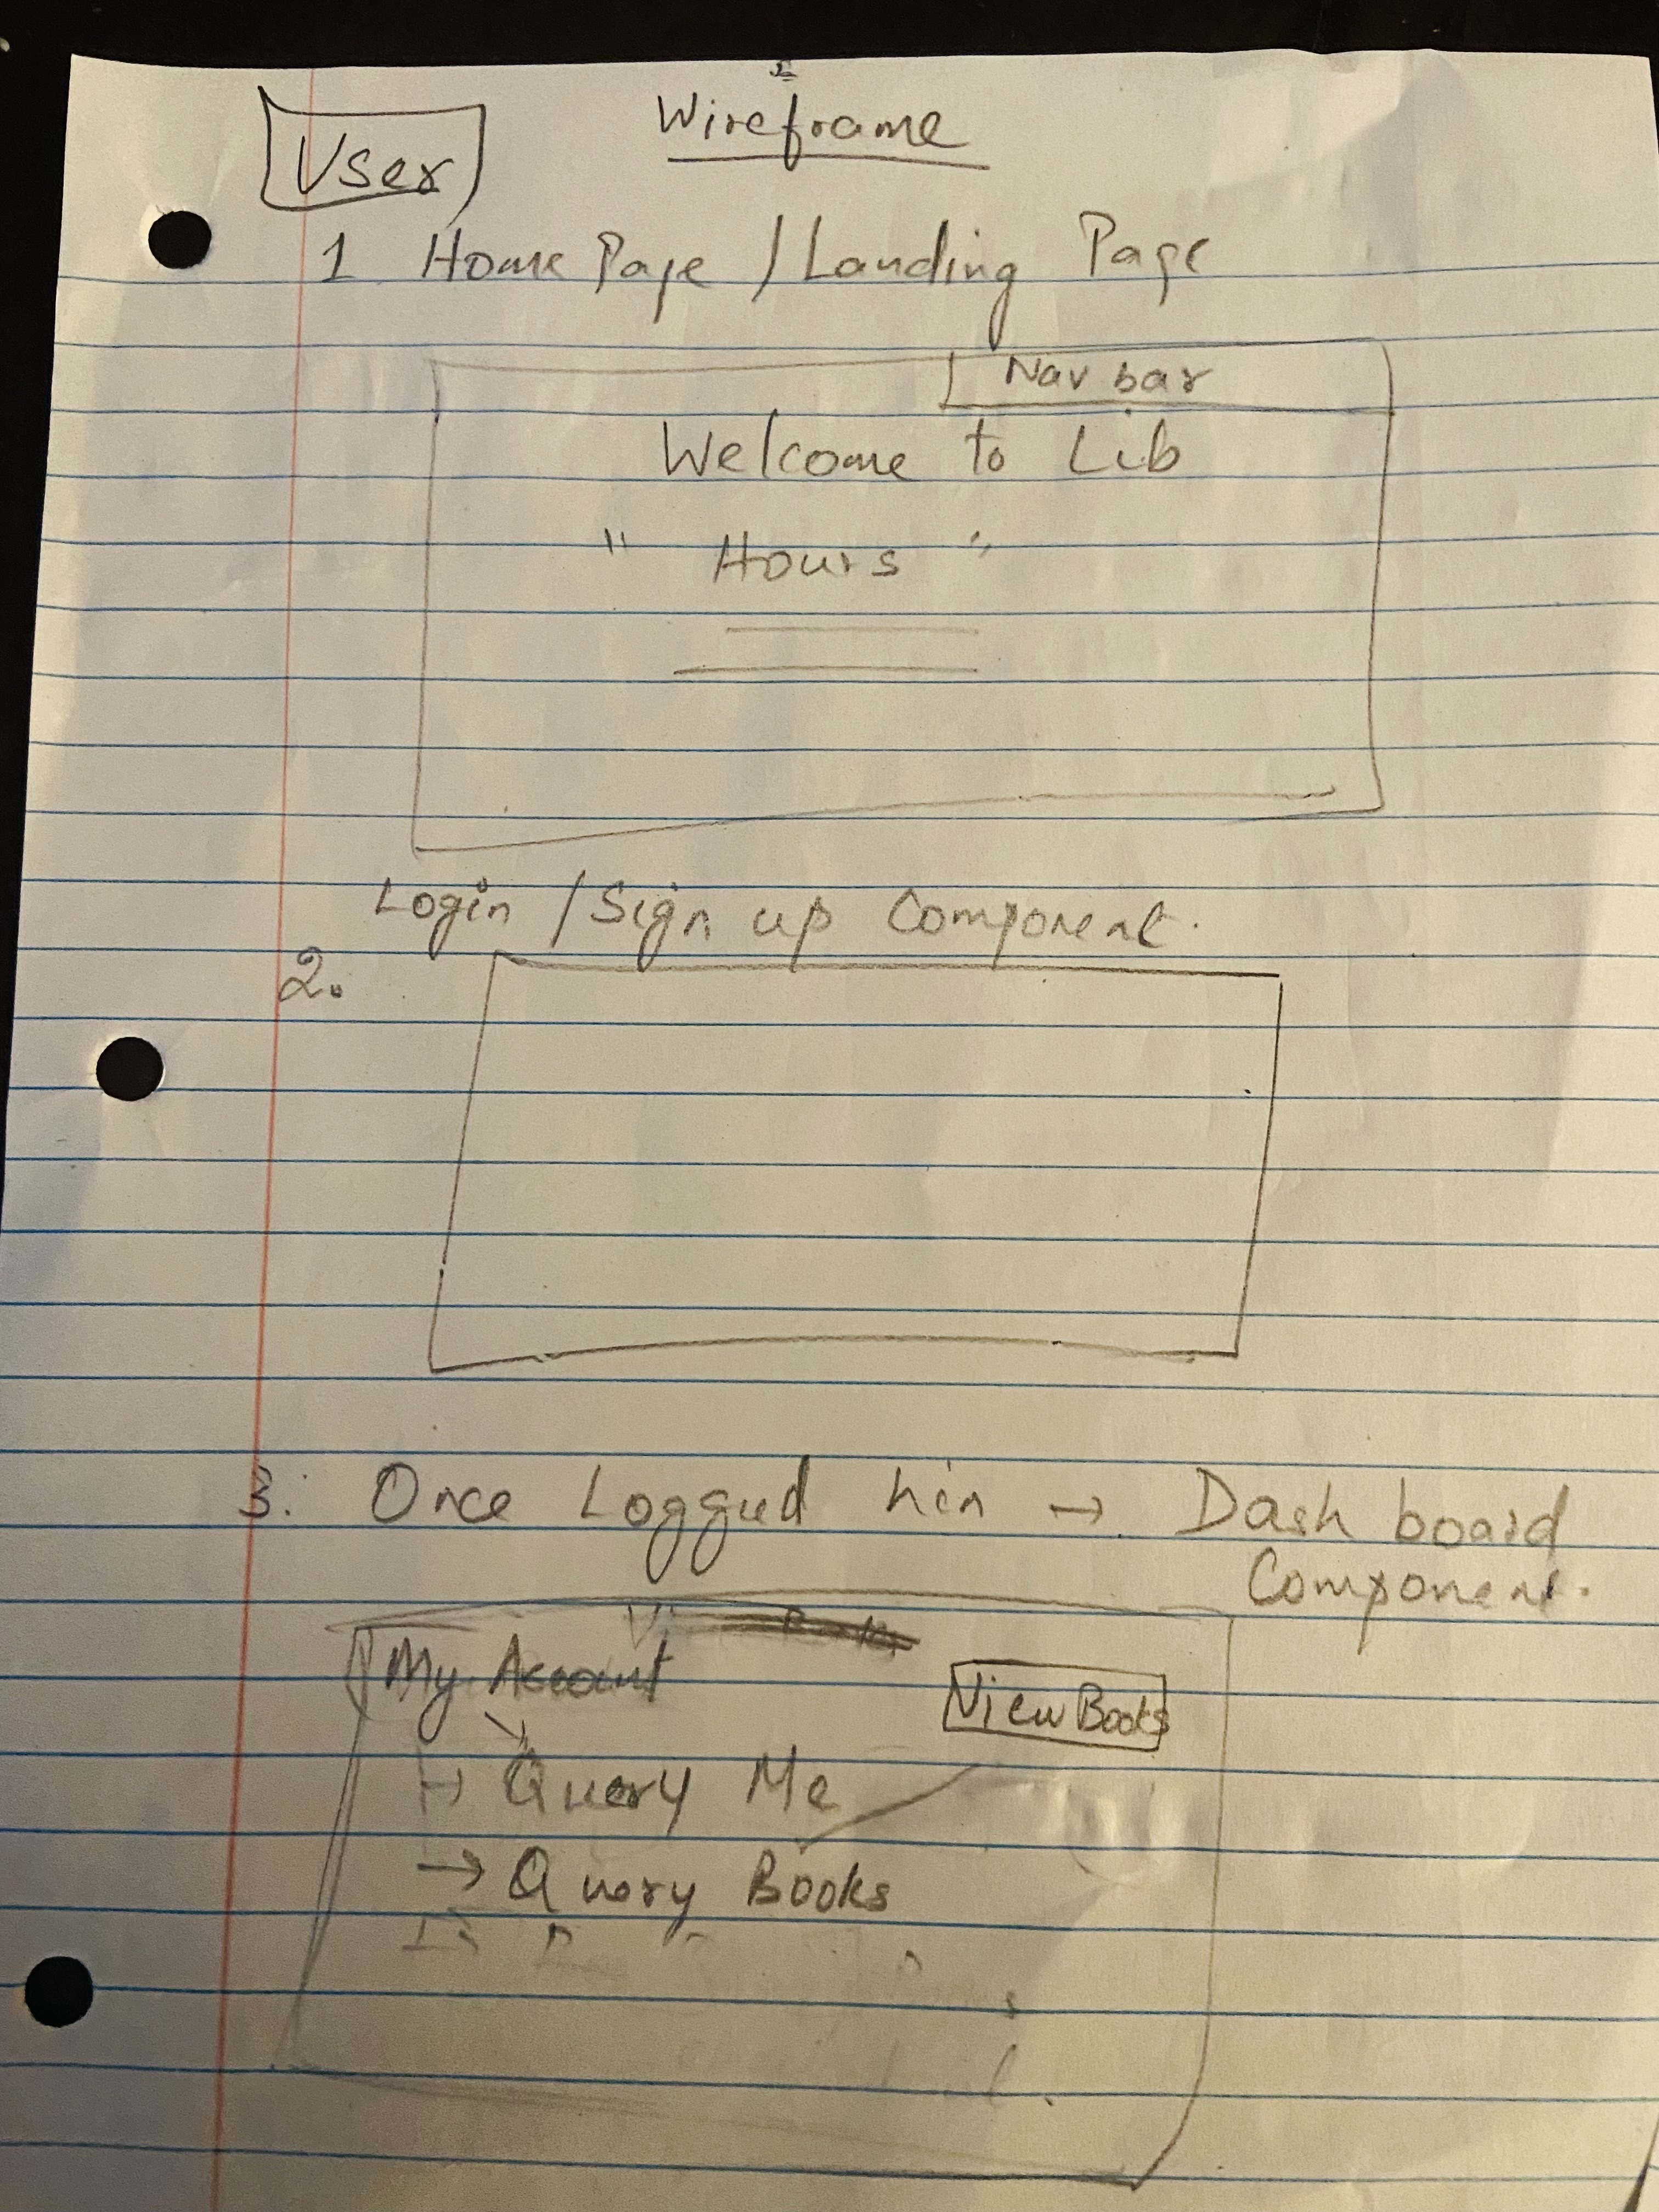 Wireframe
User
1 Home Page / Landing Page
Nav bar
Welcome to Lib
" Hours "
Login / Sign up Component.
2.
3. Once Logged → Dash board
Component.
My Account
View Books
→ Query Me
→ Query Books